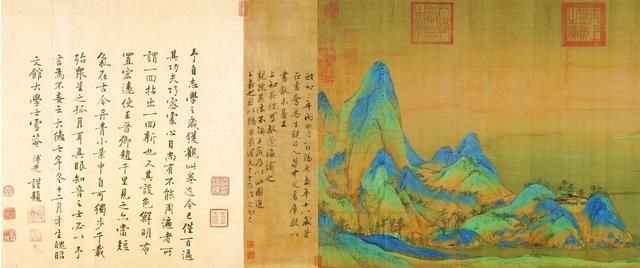 政和三年閏四月一日賜希孟年十八歲昔
在畫學為生徒召入禁中文書庫數以
畫獻未甚工
上知其性可教遂誨諭之
親授其法不踰半歲乃以此圖進
上嘉之因以賜臣京謂天下士在作之而已
予自志學之歲獲觀此卷迄今已僅百過
其功夫巧密處心目尚有不能周遍者可
謂一回拈出一回新也又其設色鮮明布
置宏遠使王晉卿趙千里見之亦當短
氣在古今丹青小景中自可獨步千載
殆眾星之孤月耳具眼知音之士必以予
言為不妄云大德七年冬十二月才生魄昭
文館大學士雪菴溥光謹題